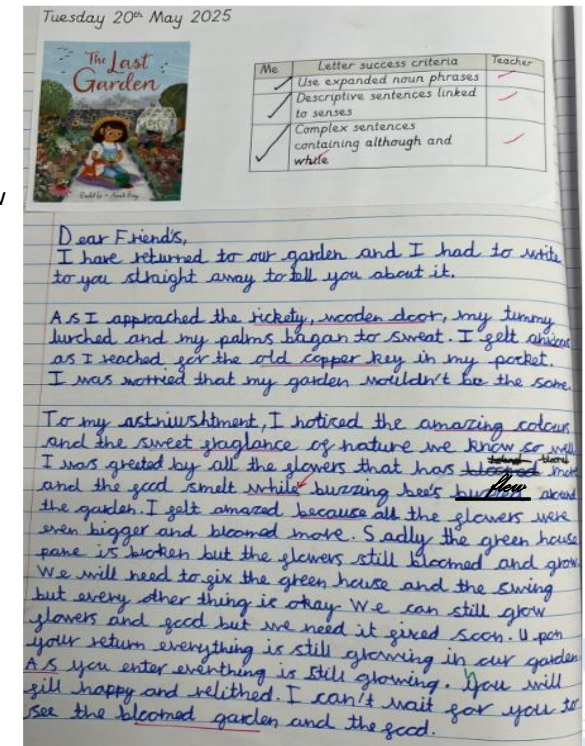 Tuesday 20th May 2025
The Last
Garden
Me Letter success criteria Teacher
Use expanded noun phrases
Descriptive sentences linked
to senses
Complex sentences
containing although and
while
w
Dear Friend's,
I have returned to our garden and I had to write
to you straight away to tell you about it.
As I approached the rickety, wooden door, my tummy
lurched and my palms bagan to sweat. I felt
as I reached for the old copper key in my pocket.
I was worried that my garden wouldn't be the same.
To my astniushtment, I noticed the amazing colours
and the sweet fraglance of nature we know so well
I was greeted by all the flowers that has bloomed more
and the food smelt while buzzing bee's flew around
the garden. I felt amazed because all the flowers were
even bigger and bloomed more. Sadly the green house
pane is broken but the flowers still bloomed and grow.
We will need to fix the green house and the swing
but every other thing is okay We can still grow
flowers and food but we need it fixed soon. Upon
your return everything is still growing in our garden
As you enter eventhing is still growing. You will
fill happy and relithed. I can't wait for you to
see the bloomed garden and the food.